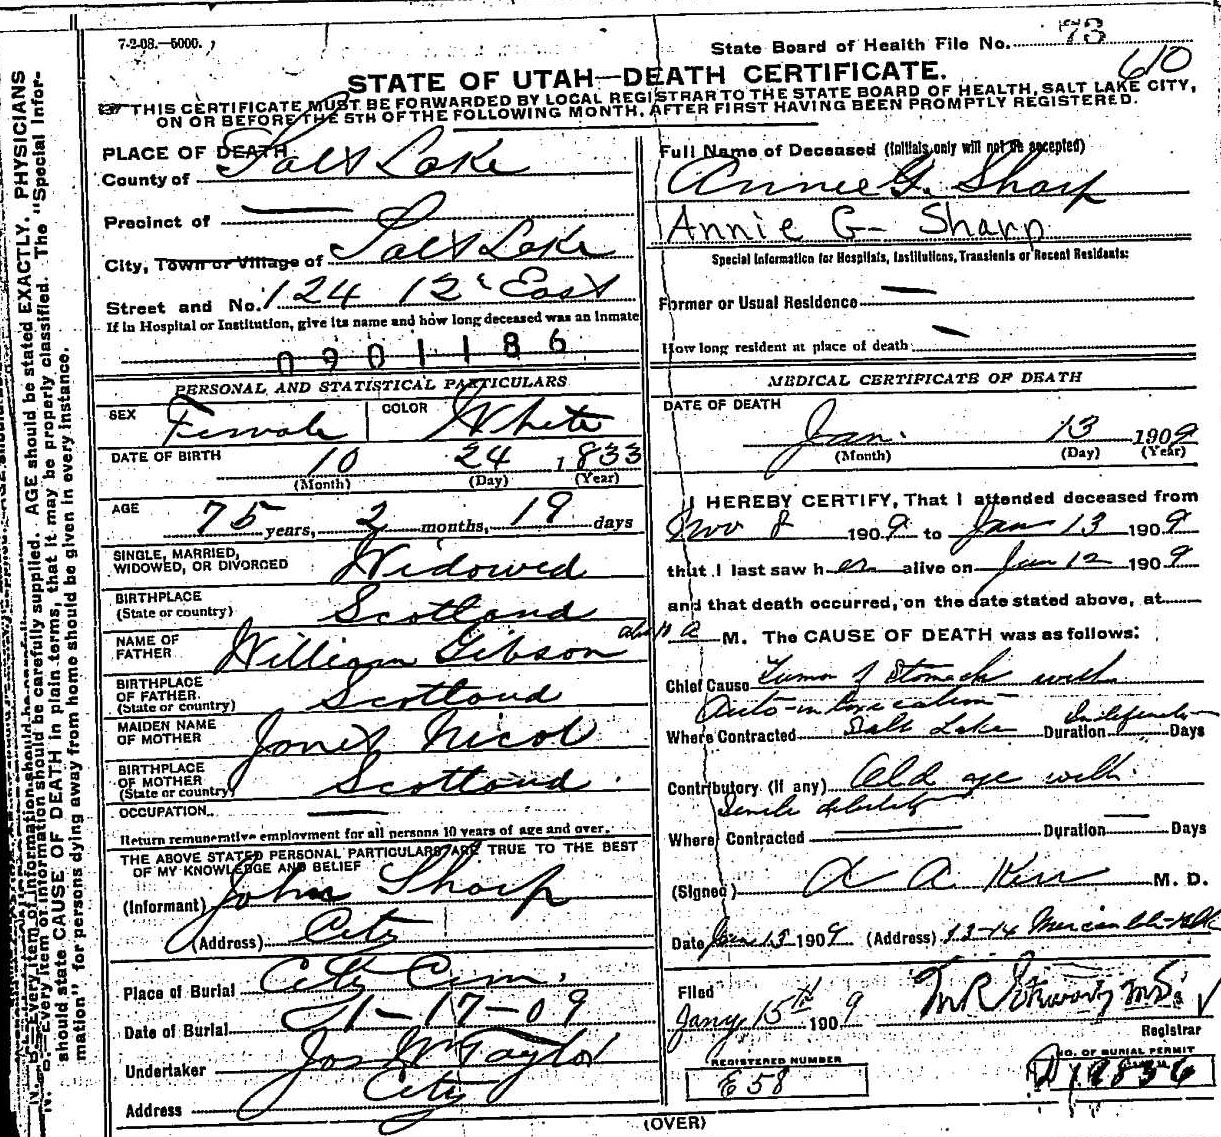 7-2-08.—5000.
State Board of Health File No. 73
60
STATE OF UTAH—DEATH CERTIFICATE.
THIS CERTIFICATE MUST BE FORWARDED BY LOCAL REGISTRAR TO THE STATE BOARD OF HEALTH, SALT LAKE CITY,
ON OR BEFORE THE 5TH OF THE FOLLOWING MONTH, AFTER FIRST HAVING BEEN PROMPTLY REGISTERED.
PLACE OF DEATH
County of Salt Lake
Precinct of —
City, Town or Village of Salt Lake
Street and No. 124 12 East
If in Hospital or Institution, give its name and how long deceased was an Inmate
0901186
PERSONAL AND STATISTICAL PARTICULARS
SEX Female COLOR White
DATE OF BIRTH 10 24 1833
(Month) (Day) (Year)
AGE 75 years, 2 months, 19 days
SINGLE, MARRIED,
WIDOWED, OR DIVORCED Widowed
BIRTHPLACE
(State or country) Scotland
NAME OF
FATHER William Gibson
BIRTHPLACE
OF FATHER
(State or country) Scotland
MAIDEN NAME
OF MOTHER Janet Nicol
BIRTHPLACE
OF MOTHER
(State or country) Scotland
OCCUPATION —
Return remunerative employment for all persons 10 years of age and over.
THE ABOVE STATED PERSONAL PARTICULARS ARE TRUE TO THE BEST
OF MY KNOWLEDGE AND BELIEF
(Informant) John Sharp
(Address) City
Place of Burial City Cem.
Date of Burial 1-17-09
Undertaker Jos Wm Taylor
Address City
Full Name of Deceased (Initials only will not be accepted)
Annie G. Sharp
Annie G- Sharp
Special Information for Hospitals, Institutions, Transients or Recent Residents:
Former or Usual Residence —
How long resident at place of death: —
MEDICAL CERTIFICATE OF DEATH
DATE OF DEATH
Jan. 13 1909
(Month) (Day) (Year)
I HEREBY CERTIFY, That I attended deceased from
Nov 8 1909 to Jan 13 1909
that I last saw her alive on Jan 12 1909
and that death occurred, on the date stated above, at
M. The CAUSE OF DEATH was as follows:
Chief Cause Tumor of Stomach with
Auto-intoxication
Where Contracted Salt Lake Duration Days
Contributory (if any) Old age with
Senile debility
Where Contracted — Duration — Days
(Signed) A A Kerr M. D.
Date Jan 13 1909 (Address) 12-14
Filed
Jany 15th 1909
M R Stewart M.D.
Registrar
REGISTERED NUMBER
E 58
NO. OF BURIAL PERMIT
(OVER)
N. B.—Every item of information should be carefully supplied. AGE should be stated EXACTLY. PHYSICIANS
should state CAUSE OF DEATH in plain terms, that it may be properly classified. The "Special Infor-
mation" for persons dying away from home should be given in every instance.